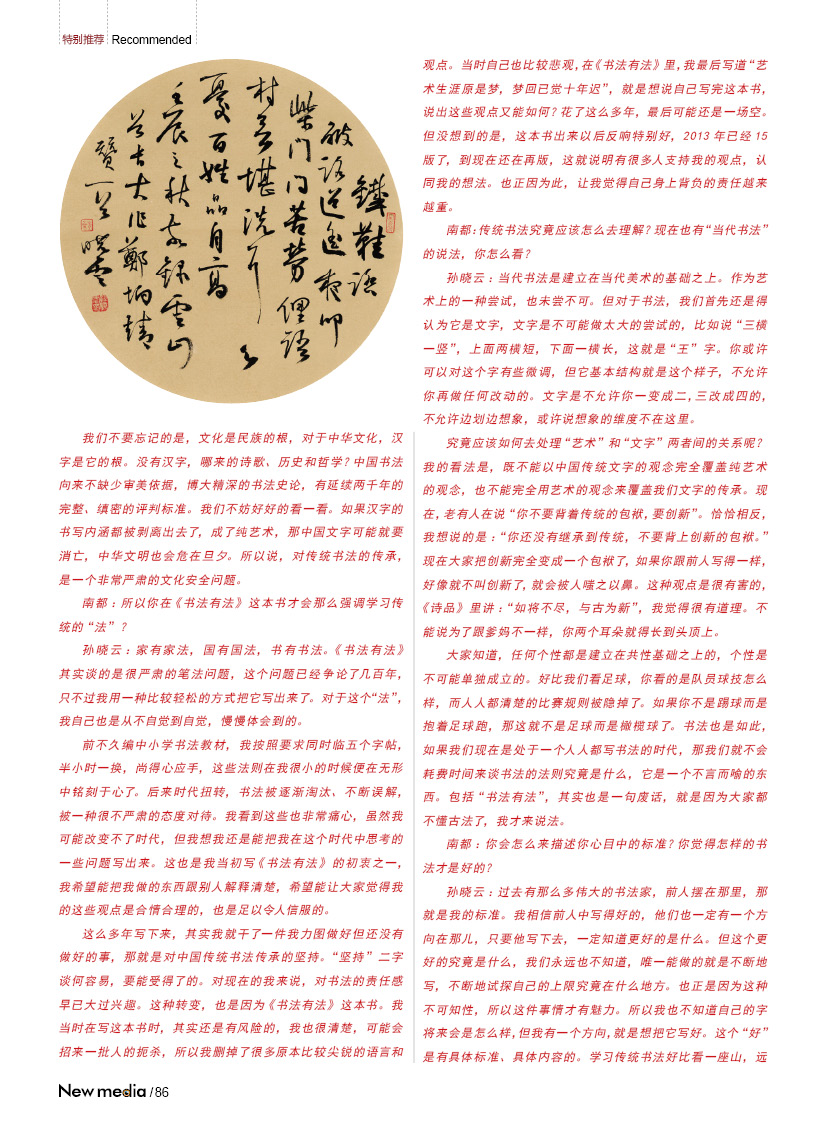 特别推荐 Recommended
柴門問苦勞俚語
村言堪洗耳
憂百姓品自高
壬辰之秋
我们不要忘记的是，文化是民族的根，对于中华文化，汉
字是它的根。没有汉字，哪来的诗歌、历史和哲学？中国书法
向来不缺少审美依据，博大精深的书法史论，有延续两千年的
完整、缜密的评判标准。我们不妨好好的看一看。如果汉字的
书写内涵都被剥离出去了，成了纯艺术，那中国文字可能就要
消亡，中华文明也会危在旦夕。所以说，对传统书法的传承，
是一个非常严肃的文化安全问题。
南都：所以你在《书法有法》这本书才会那么强调学习传
统的“法”？
孙晓云：家有家法，国有国法，书有书法。《书法有法》
其实谈的是很严肃的笔法问题，这个问题已经争论了几百年，
只不过我用一种比较轻松的方式把它写出来了。对于这个“法”，
我自己也是从不自觉到自觉，慢慢体会到的。
前不久编中小学书法教材，我按照要求同时临五个字帖，
半小时一换，尚得心应手，这些法则在我很小的时候便在无形
中铭刻于心了。后来时代扭转，书法被逐渐淘汰、不断误解，
被一种很不严肃的态度对待。我看到这些也非常痛心，虽然我
可能改变不了时代，但我想我还是能把我在这个时代中思考的
一些问题写出来。这也是我当初写《书法有法》的初衷之一，
我希望能把我做的东西跟别人解释清楚，希望能让大家觉得我
的这些观点是合情合理的，也是足以令人信服的。
这么多年写下来，其实我就干了一件我力图做好但还没有
做好的事，那就是对中国传统书法传承的坚持。“坚持”二字
谈何容易，要能受得了的。对现在的我来说，对书法的责任感
早已大过兴趣。这种转变，也是因为《书法有法》这本书。我
当时在写这本书时，其实还是有风险的，我也很清楚，可能会
招来一批人的扼杀，所以我删掉了很多原本比较尖锐的语言和
观点。当时自己也比较悲观，在《书法有法》里，我最后写道“艺
术生涯原是梦，梦回已觉十年迟”，就是想说自己写完这本书，
说出这些观点又能如何？花了这么多年，最后可能还是一场空。
但没想到的是，这本书出来以后反响特别好，2013 年已经 15
版了，到现在还在再版，这就说明有很多人支持我的观点，认
同我的想法。也正因为此，让我觉得自己身上背负的责任越来
越重。
南都：传统书法究竟应该怎么去理解？现在也有“当代书法”
的说法，你怎么看？
孙晓云：当代书法是建立在当代美术的基础之上。作为艺
术上的一种尝试，也未尝不可。但对于书法，我们首先还是得
认为它是文字，文字是不可能做太大的尝试的，比如说“三横
一竖”，上面两横短，下面一横长，这就是“王”字。你或许
可以对这个字有些微调，但它基本结构就是这个样子，不允许
你再做任何改动的。文字是不允许你一变成二，三改成四的，
不允许边划边想象，或许说想象的维度不在这里。
究竟应该如何去处理“艺术”和“文字”两者间的关系呢？
我的看法是，既不能以中国传统文字的观念完全覆盖纯艺术
的观念，也不能完全用艺术的观念来覆盖我们文字的传承。现
在，老有人在说“你不要背着传统的包袱，要创新”。恰恰相反，
我想说的是：“你还没有继承到传统，不要背上创新的包袱。”
现在大家把创新完全变成一个包袱了，如果你跟前人写得一样，
好像就不叫创新了，就会被人嗤之以鼻。这种观点是很有害的，
《诗品》里讲：“如将不尽，与古为新”，我觉得很有道理。不
能说为了跟爹妈不一样，你两个耳朵就得长到头顶上。
大家知道，任何个性都是建立在共性基础之上的，个性是
不可能单独成立的。好比我们看足球，你看的是队员球技怎么
样，而人人都清楚的比赛规则被隐掉了。如果你不是踢球而是
抱着足球跑，那这就不是足球而是橄榄球了。书法也是如此，
如果我们现在是处于一个人人都写书法的时代，那我们就不会
耗费时间来谈书法的法则究竟是什么，它是一个不言而喻的东
西。包括“书法有法”，其实也是一句废话，就是因为大家都
不懂古法了，我才来说法。
南都：你会怎么来描述你心目中的标准？你觉得怎样的书
法才是好的？
孙晓云：过去有那么多伟大的书法家，前人摆在那里，那
就是我的标准。我相信前人中写得好的，他们也一定有一个方
向在那儿，只要他写下去，一定知道更好的是什么。但这个更
好的究竟是什么，我们永远也不知道，唯一能做的就是不断地
写，不断地试探自己的上限究竟在什么地方。也正因为这种
不可知性，所以这件事情才有魅力。所以我也不知道自己的字
将来会是怎么样，但我有一个方向，就是想把它写好。这个“好”
是有具体标准、具体内容的。学习传统书法好比看一座山，远
New media /86